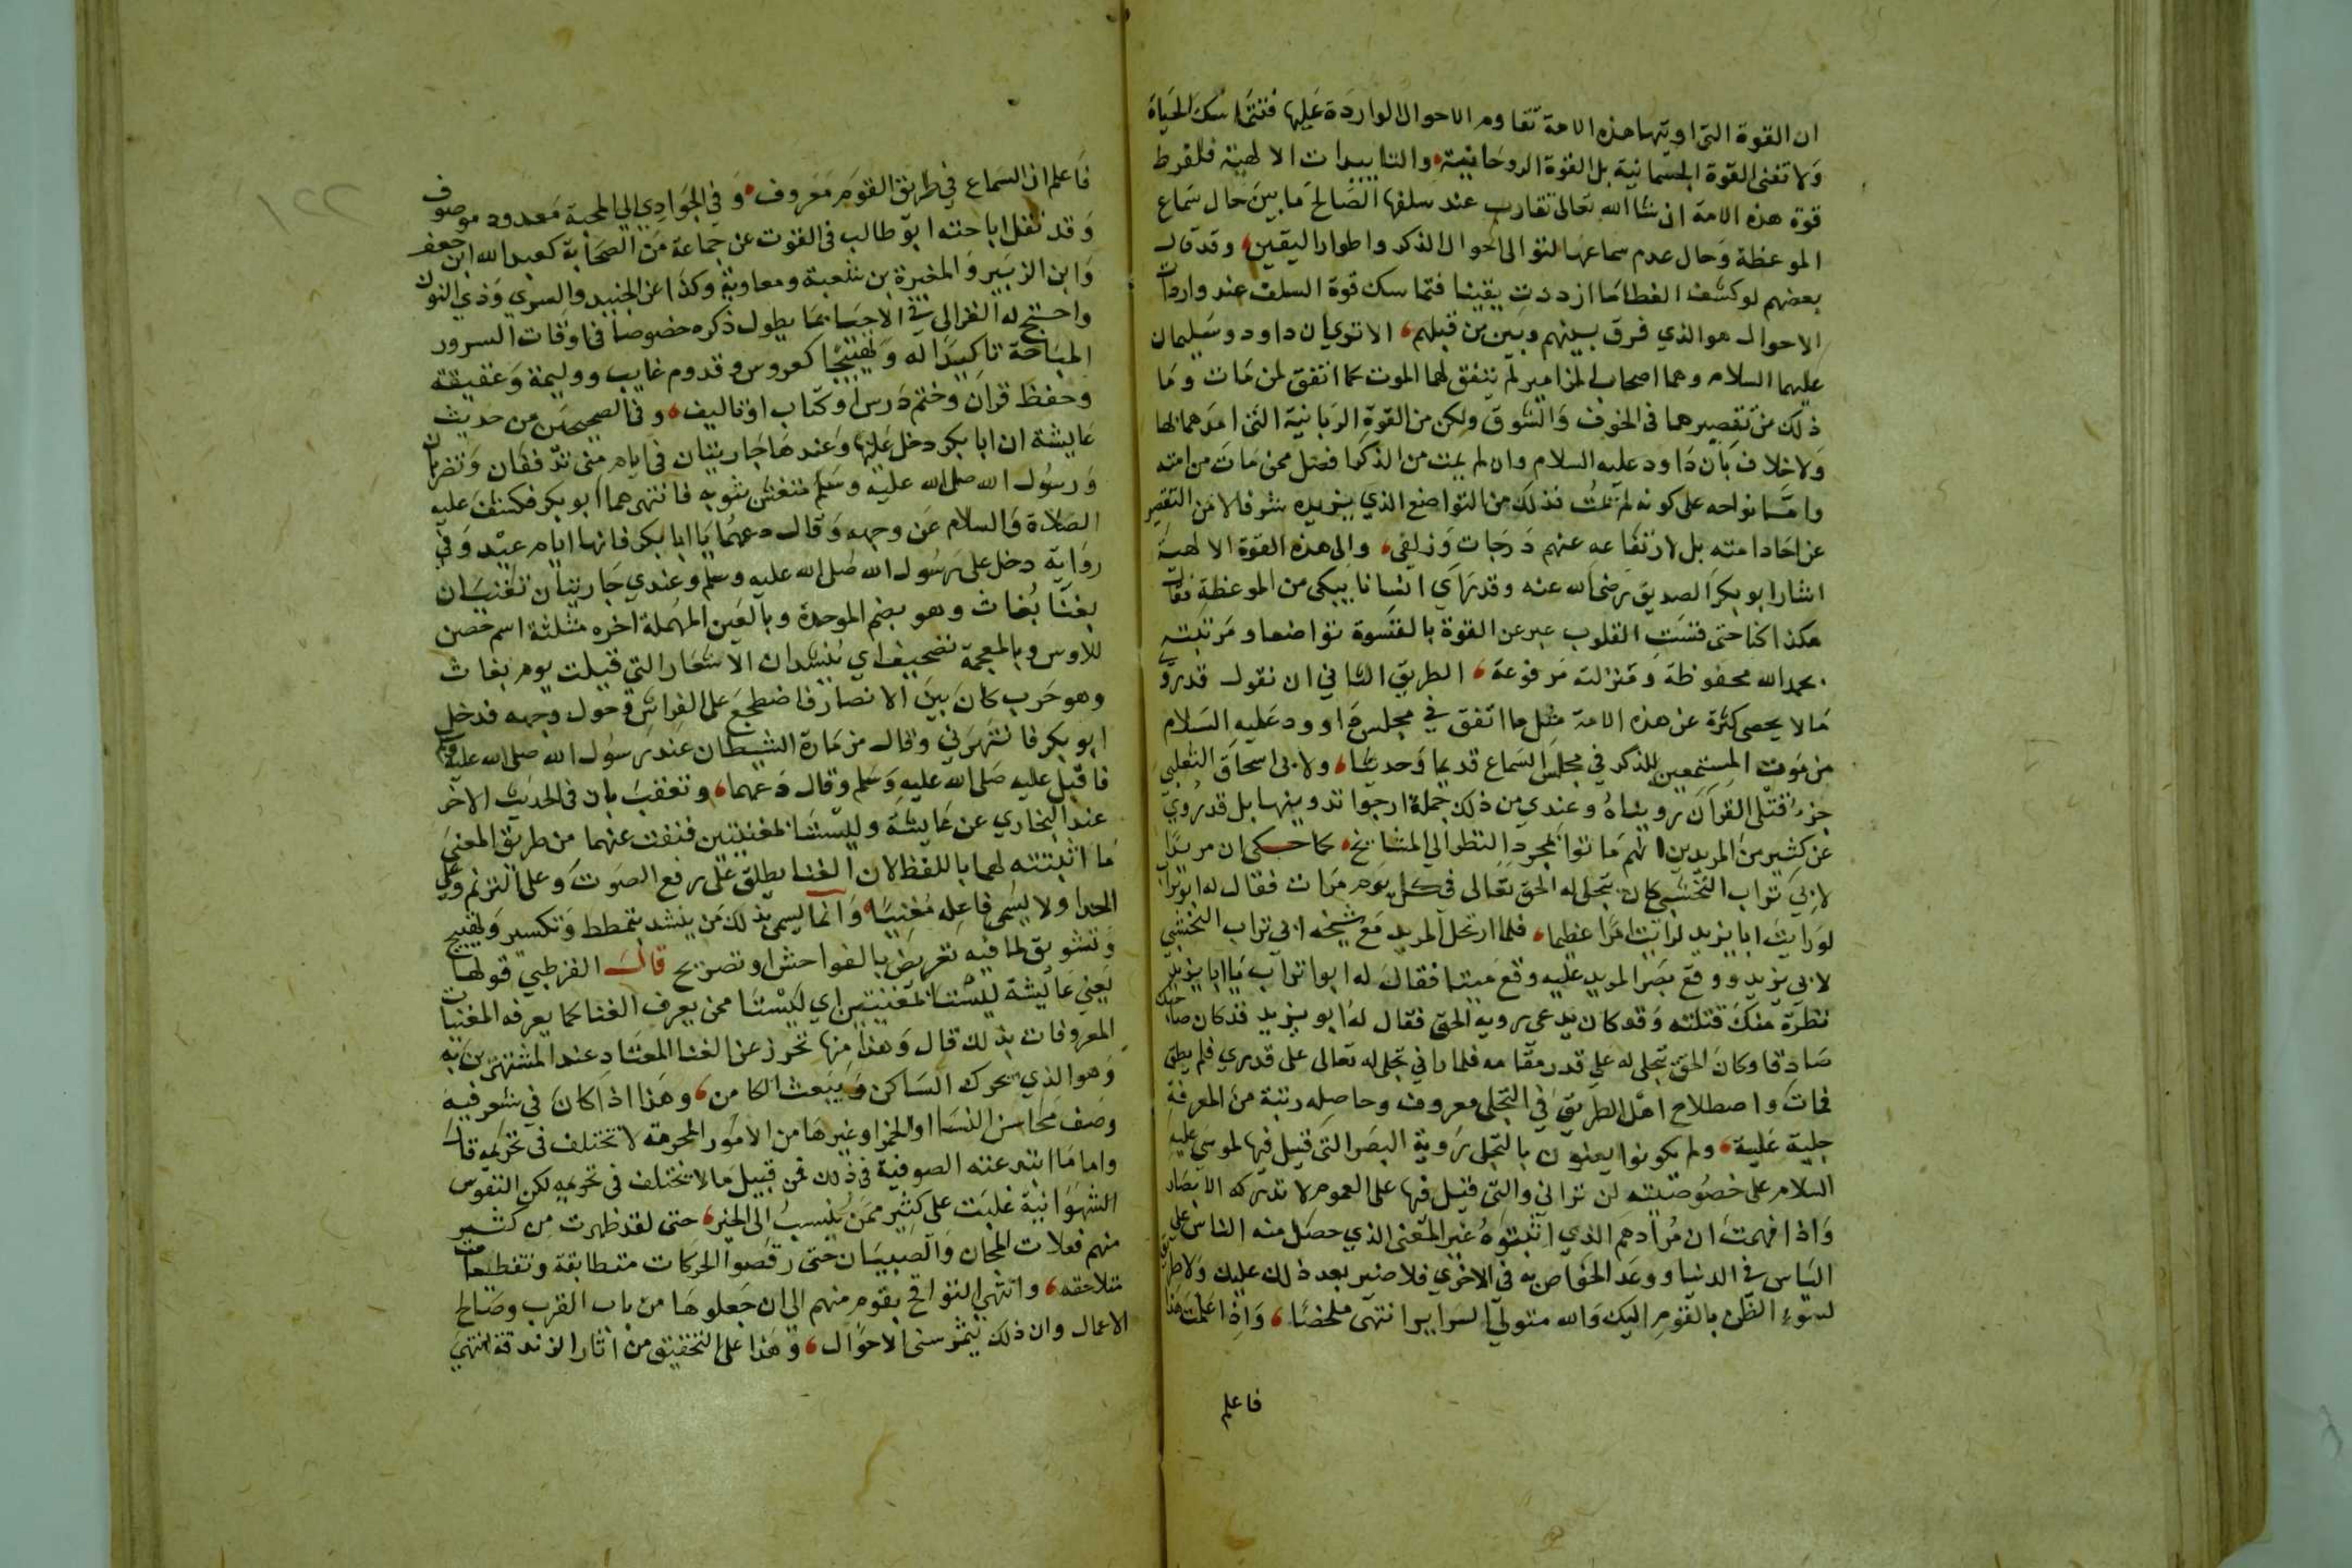 ان القوة التي اوتيتها هذه الامة تقاوم الاحوال الواردة عليها فتتماسك الحياة
ولا تفنى القوة الجسمانية بل القوة الروحانية والتاييدات الالهية فلفرط
قوة هذه الامة ان شا الله تعالى تقارب عند سلفها الصالح ما بين حال سماع
الموعظة وحال عدم سماعها لتوالي احوال الذكر واطوار اليقين وقد قال
بعضهم لو كشف الغطا ما ازددت يقينا فتماسك قوة السلف عند واردات
الاحوال هو الذي فرق بينهم وبين من قبلهم الا ترى ان داود وسليمان
عليهما السلام وهما اصحاب المزامير لم يتفق لهما الموت كما اتفق لمن مات وما
ذلك من تقصيرهما في الخوف والشوق ولكن من القوة الربانية التي امدهما بها
ولا خلاف بان داود عليه السلام وان لم يمت من الذكر افضل ممن مات من امته
واما نواحه على كونه لم يمت فذلك من التواضع الذي يزيده شرفا لا من التقصير
عن احاد امته بل لارتفاعه عنهم درجات وزلفى والى هذه القوة الالهية
اشار ابو بكر الصديق رضي الله عنه وقد راي انسانا يبكي من الموعظة فقال
هكذا كنا حتى قست القلوب عبر عن القوة بالقسوة تواضعا ومرتبته
بحمد الله محفوظة ومنزلته مرفوعة الطريق الثاني ان نقول قد روي
ما لا يحصى كثرة عن هذه الامة مثل ما اتفق في مجلس داوود عليه السلام
من موت المستمعين للذكر في مجلس السماع قديما وحديثا ولابي اسحاق الثعلبي
جزء قتلى القرآن رويناه وعندي من ذلك جملة ارجوا تدوينها بل قد روي
عن كثير من المريدين انهم ماتوا بمجرد النظر الى المشايخ كما حكى ان مريدا
لابي تراب النخشبي كان يتجلى له الحق تعالى في كل يوم مرات فقال له ابو تراب
لو رايت ابا يزيد لرايت امرا عظيما فلما ارتحل المريد مع شيخه ابي تراب النخشبي
لابي يزيد ووقع بصر المريد عليه وقع ميتا فقال له ابو تراب يا ابا يزيد
نظرة منك قتلته وقد كان يدعي روية الحق فقال له ابو يزيد قد كان صاحبك
صادقا وكان الحق يتجلى له على قدر مقامه فلما راني تجلى له تعالى على قدري فلم يطق
فمات واصطلاح اهل الطريق في التجلي معروف وحاصله رتبة من المعرفة
جلية علية ولم يكونوا يعنون بالتجلي روية البصر التي قيل فيها لموسى عليه
السلام على خصوصيته لن تراني والتي قيل فيها على العموم لا تدركه الابصار
واذا فهمت ان مرادهم الذي اثبتوه غير المعنى الذي حصل منه الناس على
الياس في الدنيا ووعد الخواص به في الاخرى فلا ضير بعد ذلك عليك ولا طريق
لسوء الظن بالقوم اليك والله متولي السراير انتهى ملخصا واذا علمت هذا
فاعلم
فاعلم ان السماع في طريق القوم معروف وفي الجواذب الى المحبة معدود موصوف
وقد نقل اباحته ابو طالب في القوت عن جماعة من الصحابة كعبد الله ابن جعفر
وابن الزبير والمغيرة بن شعبة ومعاوية وكذا عن الجنيد والسري وذي النون
واحتج له الغزالي في الاحيا بما يطول ذكره خصوصا في اوقات السرور
المباحة تاكيدا له وتهييجا كعروس وقدوم غايب ووليمة وعقيقة
وحفظ قران وختم درس او كتاب او تاليف وفي الصحيحين من حديث
عايشة ان ابا بكر دخل عليها وعندها جاريتان في ايام منى تدففان وتضربان
ورسول الله صلى الله عليه وسلم متغش بثوبه فانتهرهما ابو بكر فكشف عليه
الصلاة والسلام عن وجهه وقال دعهما يا ابا بكر فانها ايام عيد وفي
رواية دخل على رسول الله صلى الله عليه وسلم وعندي جاريتان تغنيان
بغنا بعاث وهو بضم الموحدة وبالعين المهملة اخره مثلثة اسم حصن
للاوس وبالمعجمة تصحيف اي ينشدان الاشعار التي قيلت يوم بعاث
وهو حرب كان بين الانصار فاضطجع على الفراش وحول وجهه فدخل
ابو بكر فانتهرني وقال مزمارة الشيطان عند رسول الله صلى الله عليه
فاقبل عليه صلى الله عليه وسلم وقال دعهما وتعقب بان في الحديث الاخر
عند البخاري عن عايشة وليستا بمغنيتين فنفت عنهما من طريق المعنى
ما اثبتته لهما باللفظ لان الغنا يطلق على رفع الصوت وعلى الترنم وعلى
الحدا ولا يسمى فاعله مغنيا وانما يسمى بذلك من ينشد بتمطط وتكسير وتهييج
وتشويق لما فيه تعريض بالفواحش او تصريح قال القرطبي قولها
يعني عايشة ليستا بمغنيتين اي ليستا ممن يعرف الغنا كما يعرفه المغنيات
المعروفات بذلك قال وهذا منها تحرز عن الغنا المعتاد عند المشتهرين به
وهو الذي يحرك الساكن ويبعث الكامن وهذا اذا كان في شعر فيه
وصف محاسن النسا او الخمر او غيرها من الامور المحرمة لا تختلف في تحريمه قال
واما ما ابتدعته الصوفية في ذلك فمن قبيل ما لا يختلف في تحريمه لكن النفوس
الشهوانية غلبت على كثير ممن ينسب الى الخير حتى لقد ظهرت من كثير
منهم فعلات المجان والصبيان حتى رقصوا الحركات متطابقة وتقطيعات
متلاحقه وانتهى التواقح بقوم منهم الى ان جعلوها من باب القرب وصالح
الاعمال وان ذلك يثمر سنى الاحوال وهذا على التحقيق من اثار الزندقة انتهى